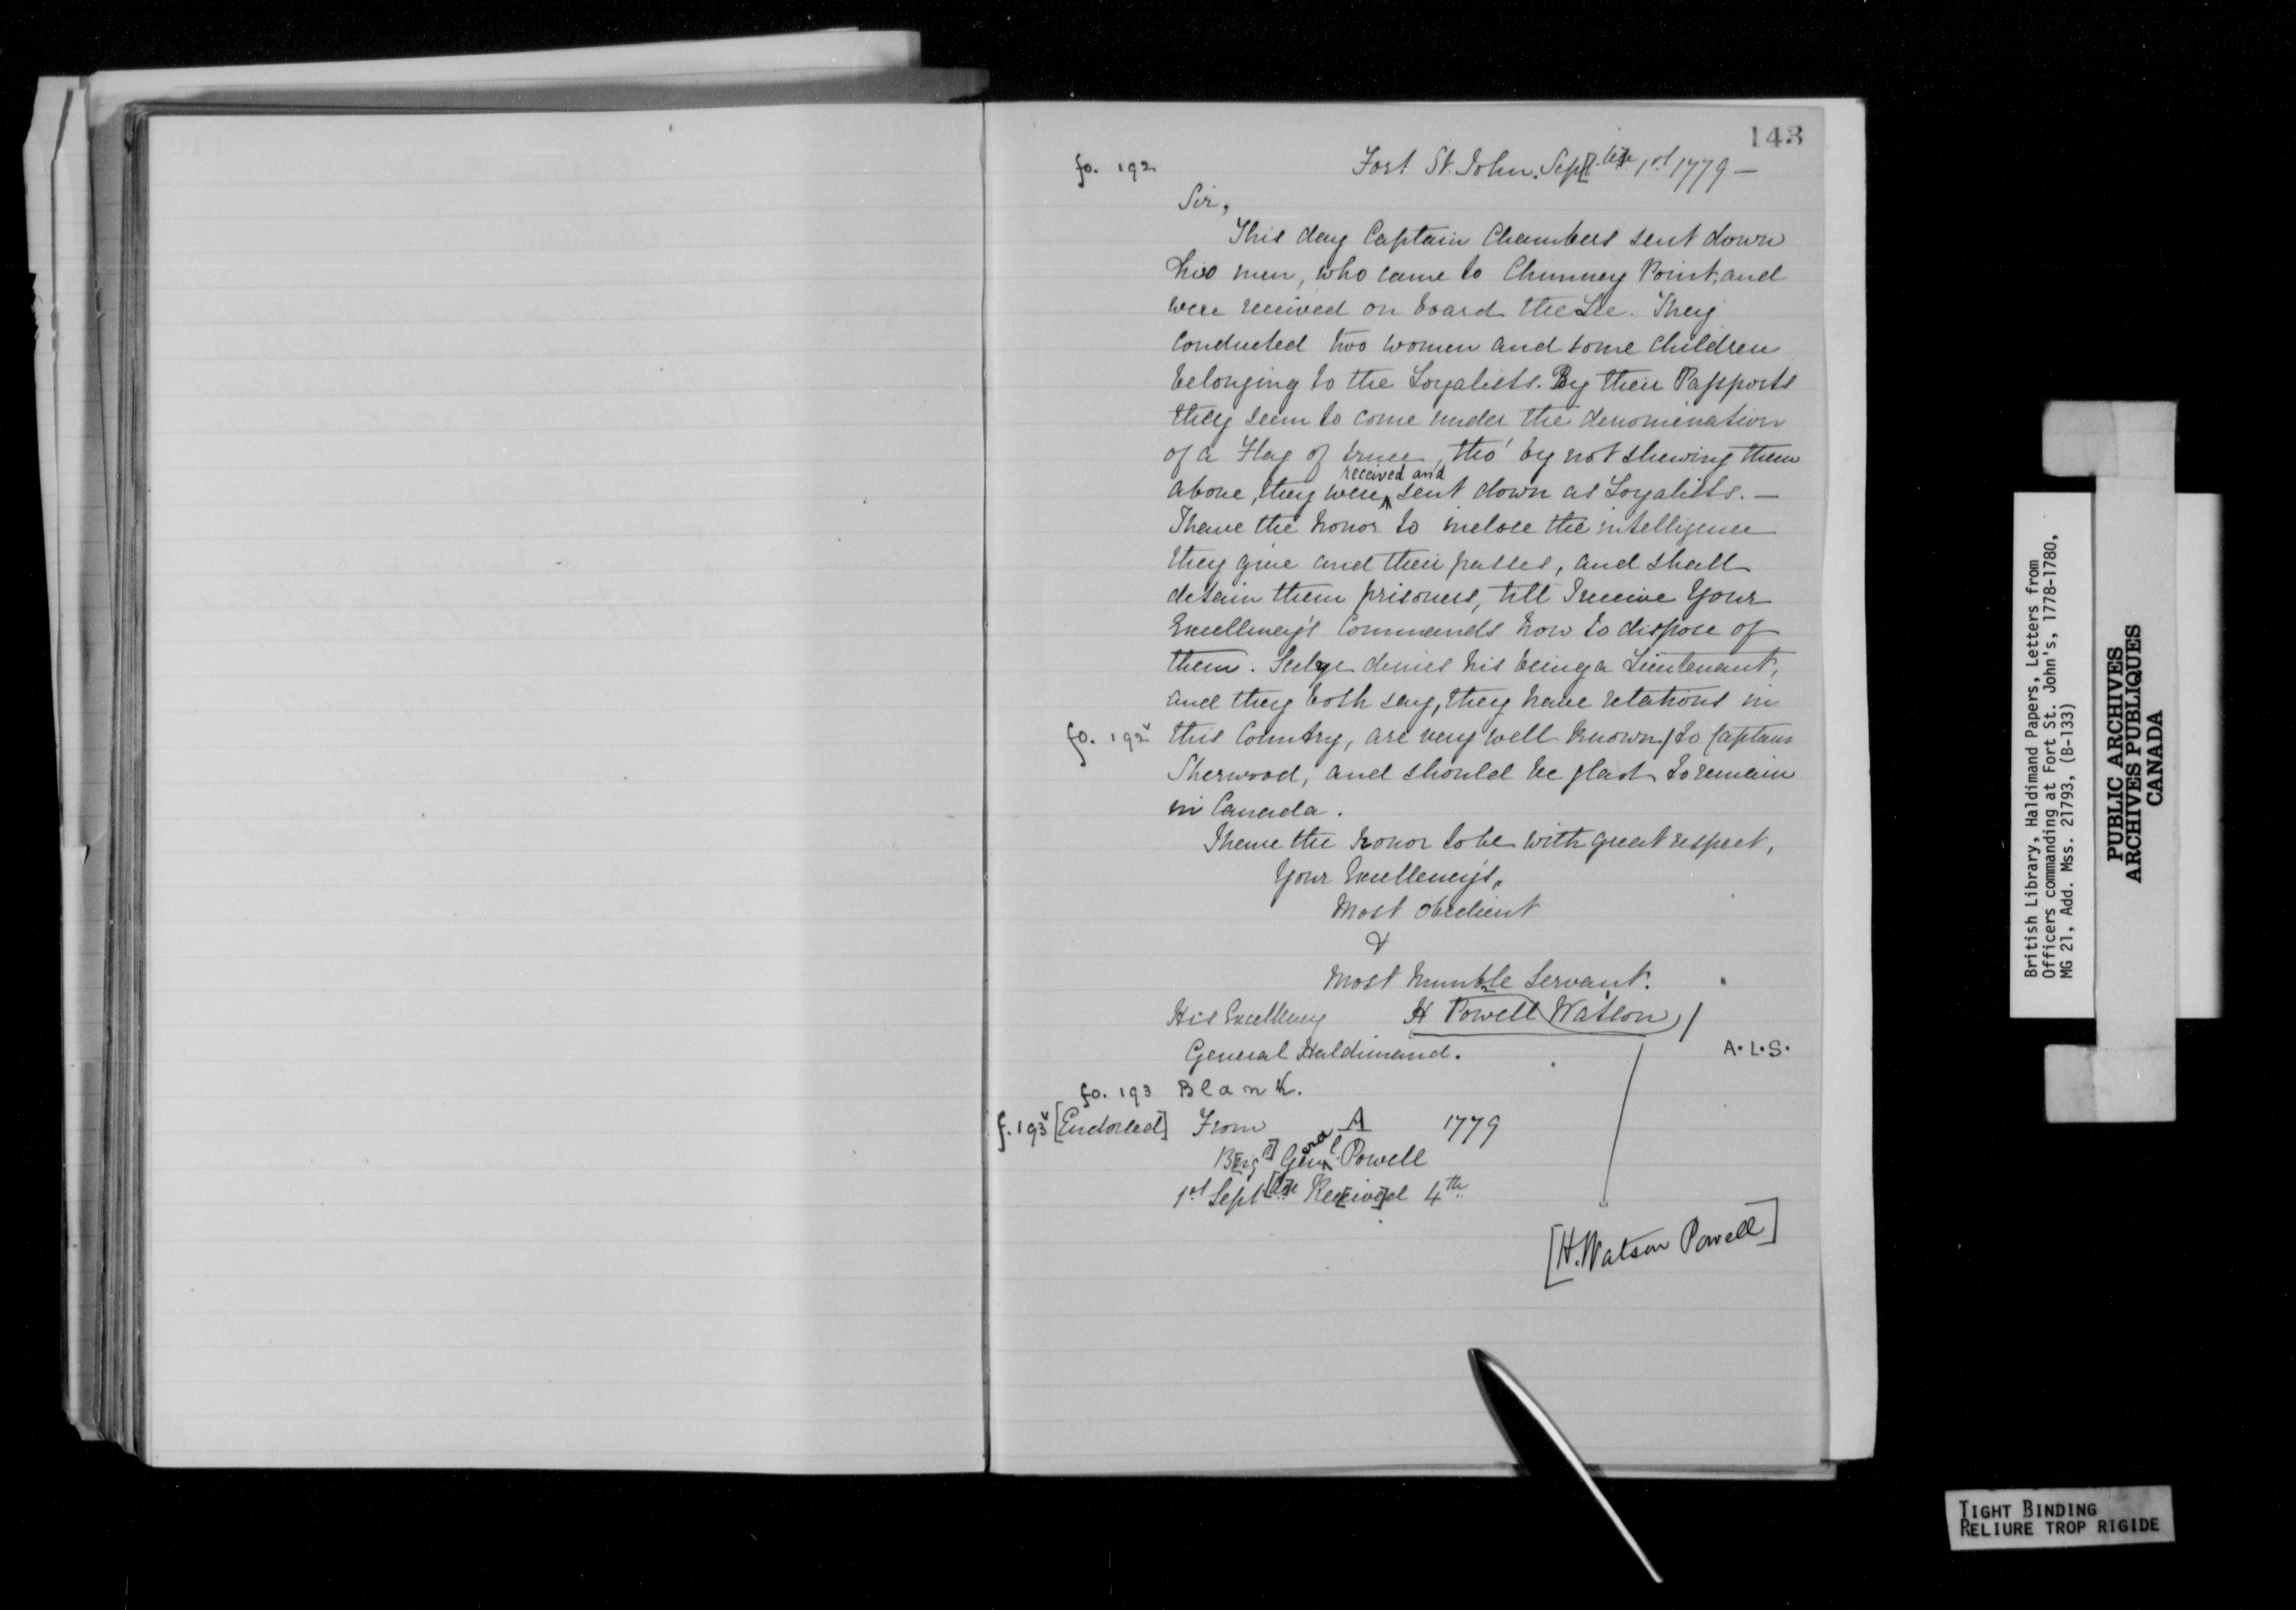 143
fo. 192
Fort St. John. Sep[t.bre] 1st 1779 —
Sir,
This day Captain Chambers sent down
two men, who came to Chimney Point, and
were received on board the Lee. They
conducted two women and some children
belonging to the Loyalists. By their Passports
they seem to come under the denomination
of a Flag of truce, tho' by not shewing them
received and
above, they were ^ sent down as Loyalists. —
I have the honor to inclose the intelligence
they give and their passes, and shall
detain them prisoners, till I receive Your
Excellency's Commands how to dispose of
them. denies his being a Lieutenant,
and they both say, they have relations in
fo. 192v this Country, are very well known / to Captain
Sherwood, and should be glad to remain
in Canada.
I have the honor to be with great respect,
Your Excellency's,
Most obedient
&
Most humble Servant.
His Excellency H Powell Watson /
General Haldimand. A.L.S.
fo. 193 Blank.
f. 193v [Endorsed] From A 1779
B[rig.r] General Powell
1st Sept[bre] Rec[eive]d 4th
[H. Watson Powell]
British Library, Haldimand Papers, Letters from
Officers commanding at Fort St. John's, 1778-1780,
MG 21, Add. Mss. 21793, (B-133)
PUBLIC ARCHIVES
ARCHIVES PUBLIQUES
CANADA
TIGHT BINDING
RELIURE TROP RIGIDE